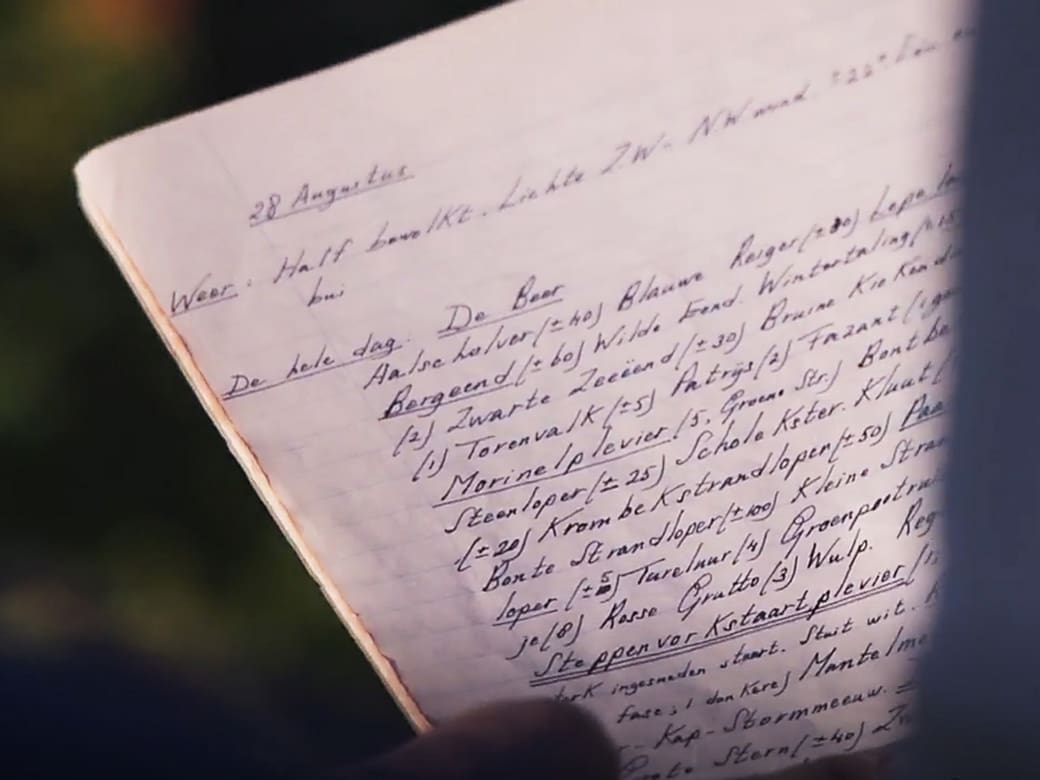 28 Augustus
Weer: Half bewolkt. Lichte Z.W- N.W wind. ±22°
bui
De hele dag. De Beer
Aalscholver (±40) Blauwe Reiger (±80) Lepela
Bergeend (±60) Wilde Eend. Wintertaling (±15
(2) Zwarte Zeeëend (±30) Bruine Kiekendi
(1) Torenvalk (±5) Patrijs (2) Fazant (1
Morinelplevier (5, Groene Str.) Bontbe
Steenloper (±25) Scholekster. Kluut (
(±20) Krombekstrandloper (±50) Paa
Bonte Strandloper (±100) Kleine Stran
loper (±5) Tureluur (4) Groenpootrui
je (8) Rosse Grutto (3) Wulp. Reg
Steppenvorkstaartplevier (1,
ingesneden staart. Stuit wit.
fase, 1 donkere) Mantelme
- Kap- Stormmeeuw. ±
Grote Stern (±40) Zw